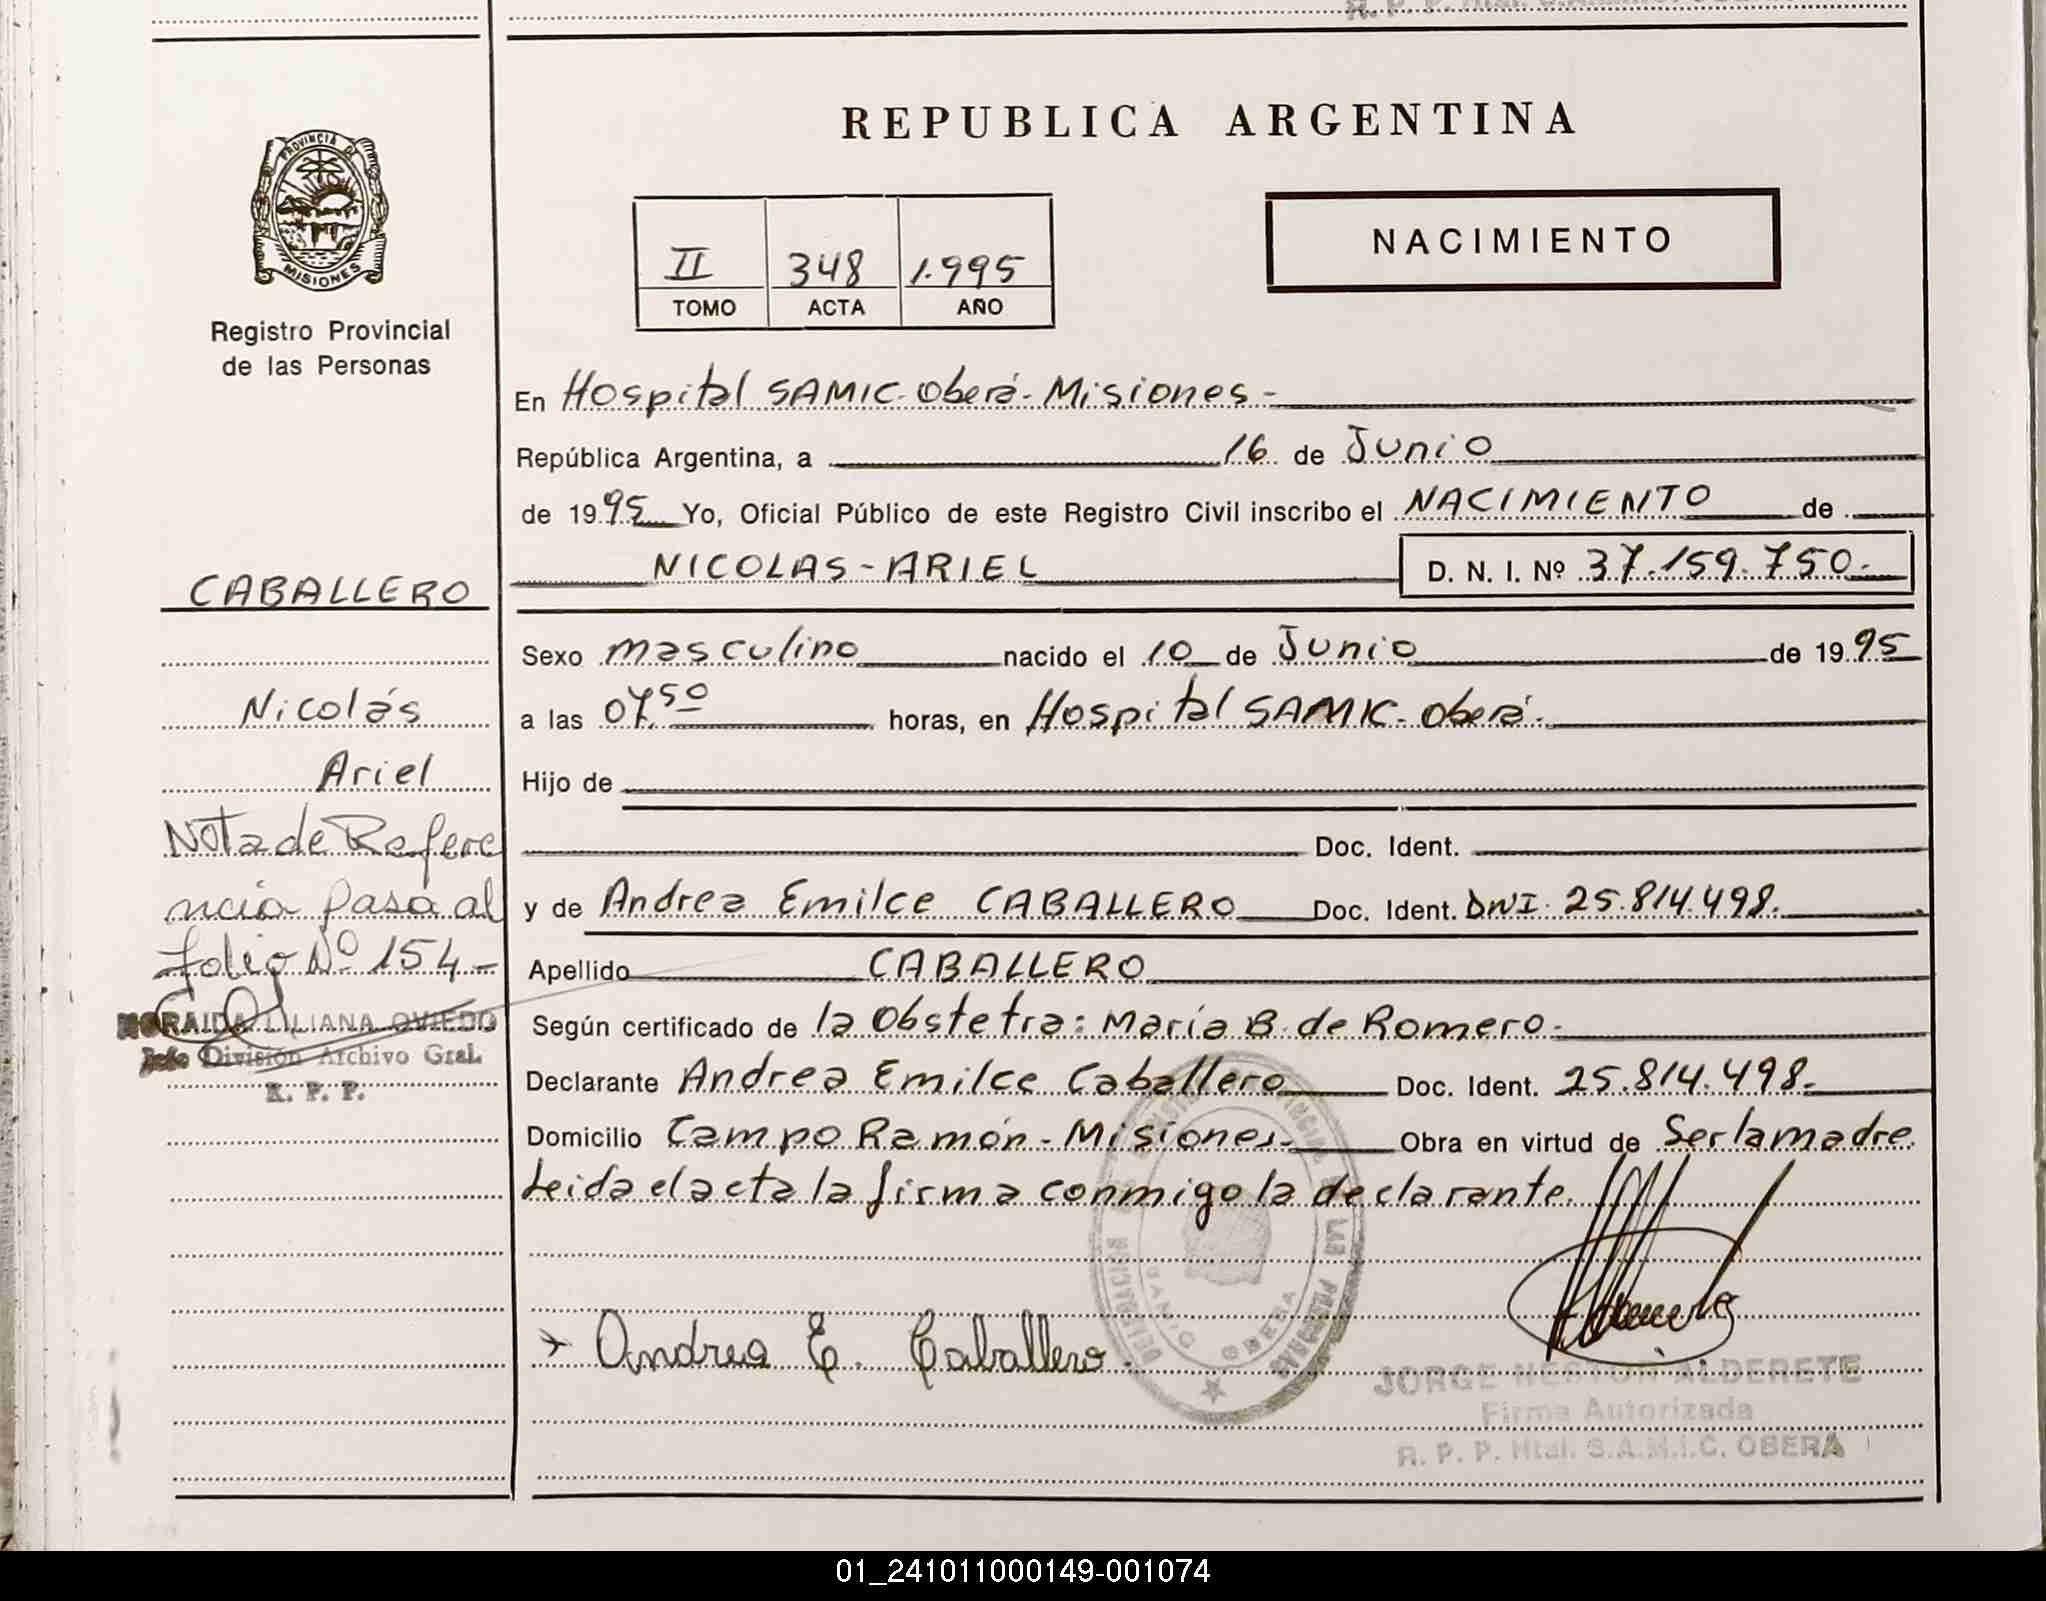 PROVINCIA DE
MISIONES
Registro Provincial
de las Personas
CABALLERO
Nicolás
Ariel
Nota de Refere
ncia pasa al
folio Nº 154-
NORAIDA LILIANA OVIEDO
Jefe División Archivo Gral.
R. P. P.
REPUBLICA ARGENTINA
II 348 1.995
TOMO ACTA AÑO
NACIMIENTO
En Hospital SAMIC-Oberá-Misiones-
República Argentina, a 16 de Junio
de 1995 Yo, Oficial Público de este Registro Civil inscribo el NACIMIENTO de
NICOLAS-ARIEL D. N. I. Nº 37.159.750.-
Sexo masculino nacido el 10 de Junio de 1995
a las 07.50 horas, en Hospital SAMIC-Oberá-
Hijo de
Doc. Ident.
y de Andrea Emilce CABALLERO Doc. Ident. DNI. 25.814.498.
Apellido CABALLERO
Según certificado de la Obstetra: María B. de Romero.-
Declarante Andrea Emilce Caballero Doc. Ident. 25.814.498.-
Domicilio Campo Ramón-Misiones- Obra en virtud de Ser la madre.
Leida el acta la firma conmigo la declarante.
Andrea E. Caballero.
OBERA
JORGE NESTOR ALDERETE
Firma Autorizada
R. P. P. Htal. S.A.M.I.C. OBERA
01_241011000149-001074